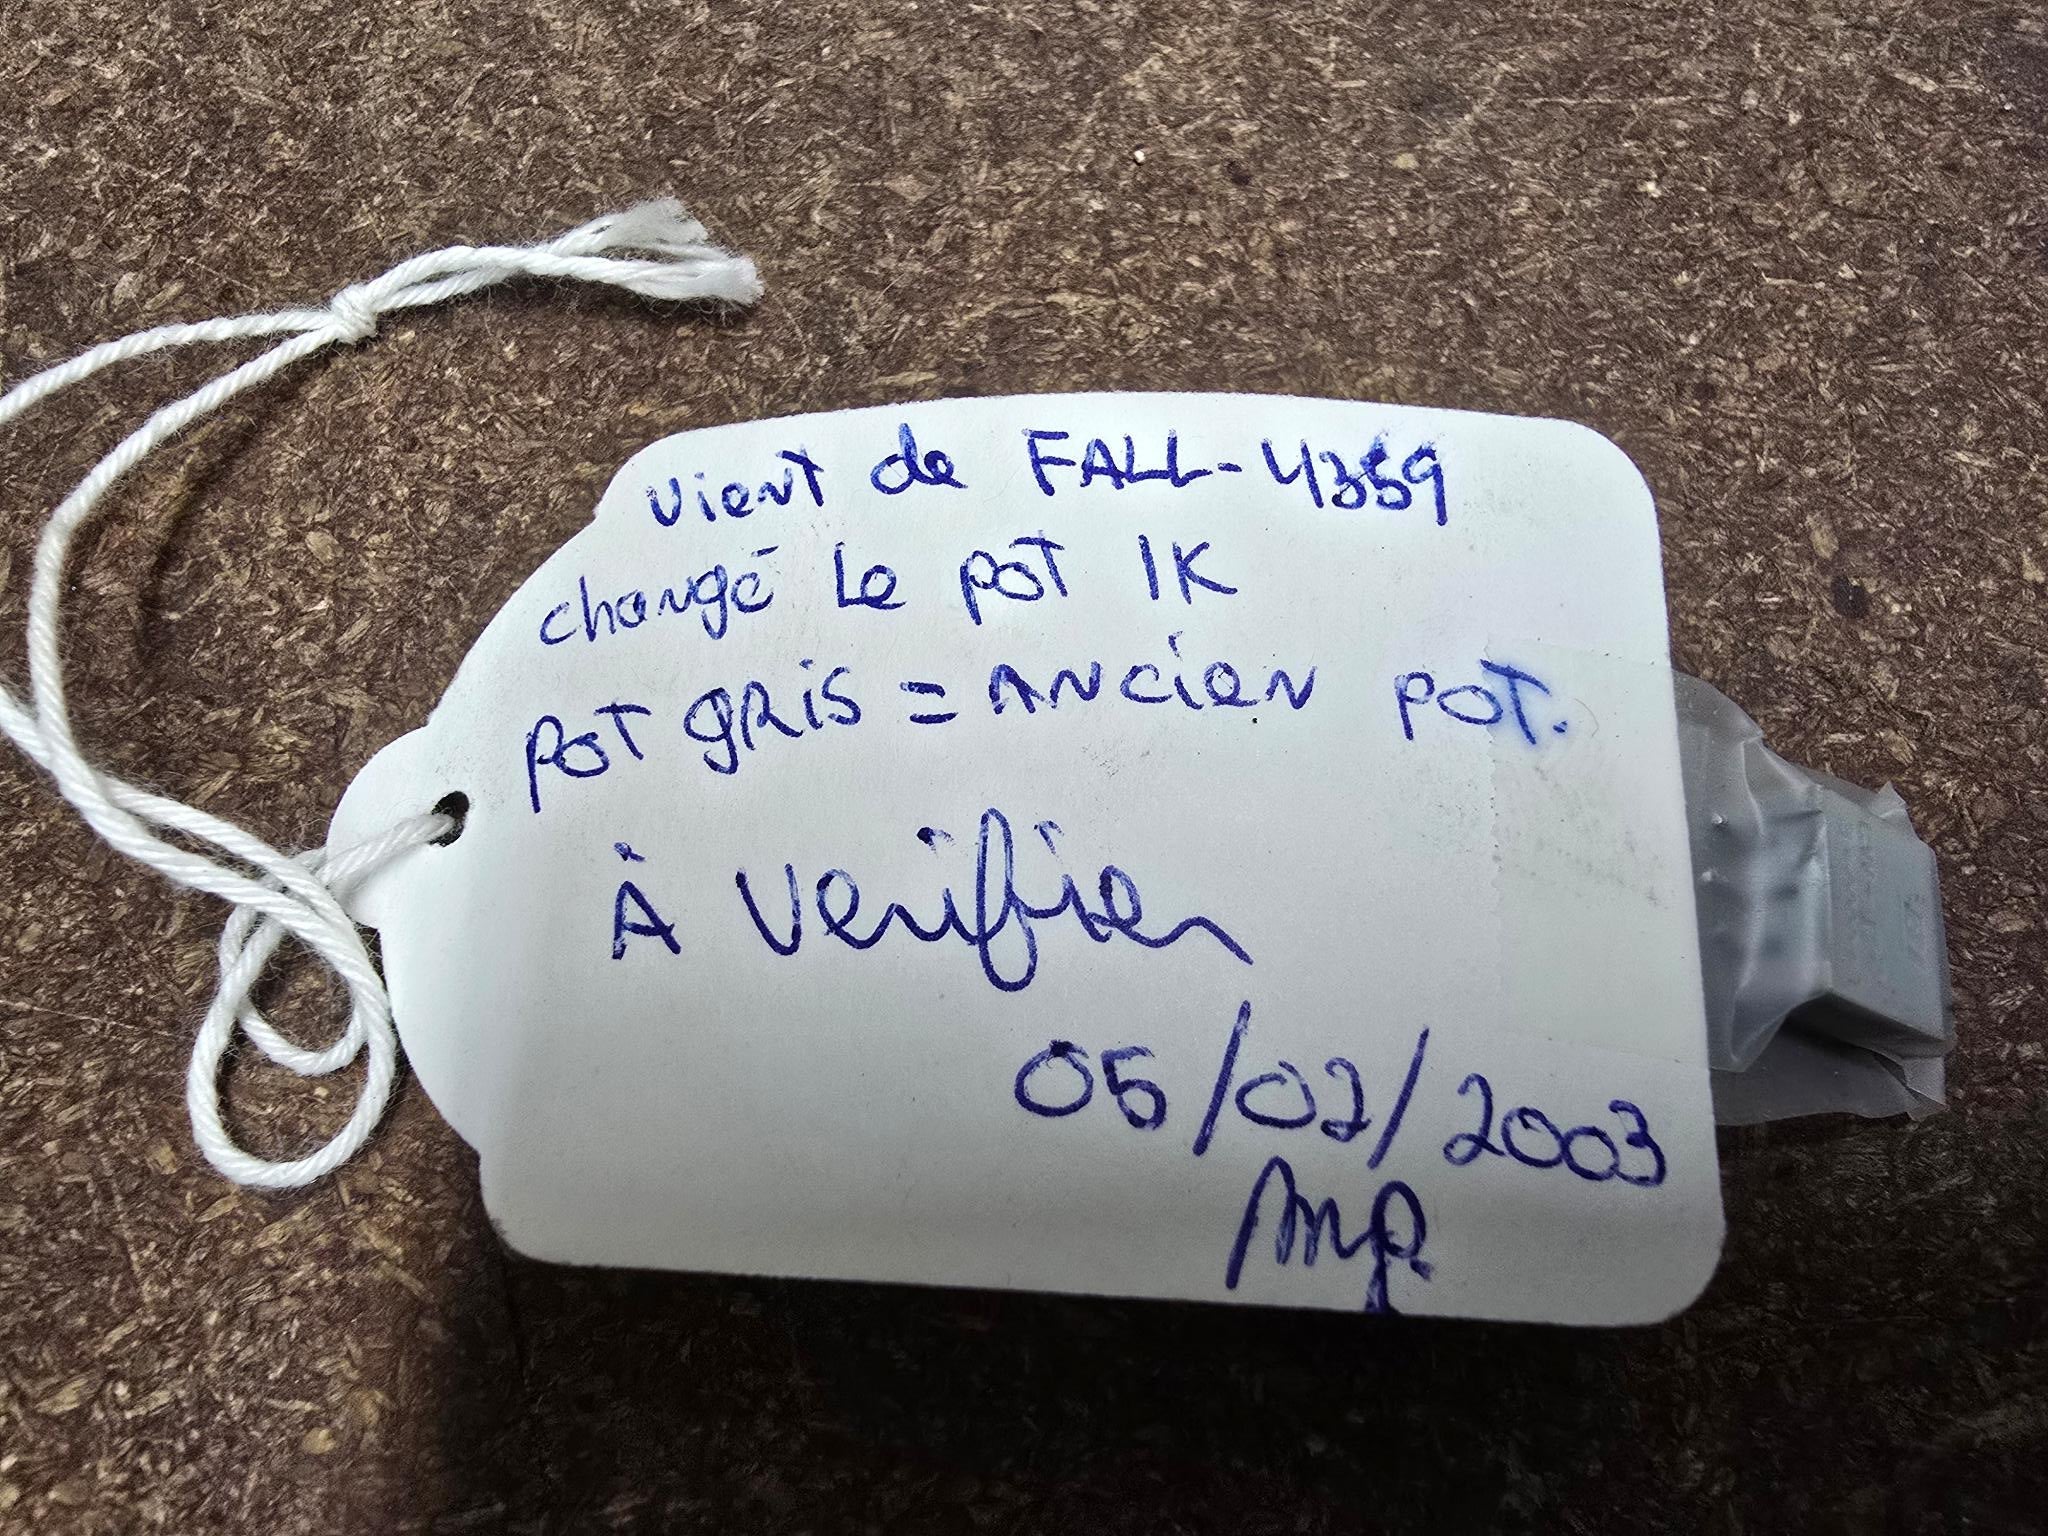 vient de FALL-4359
changé le pot 1K
pot gris = ANcieN pot.
À Verifier
05/02/2003